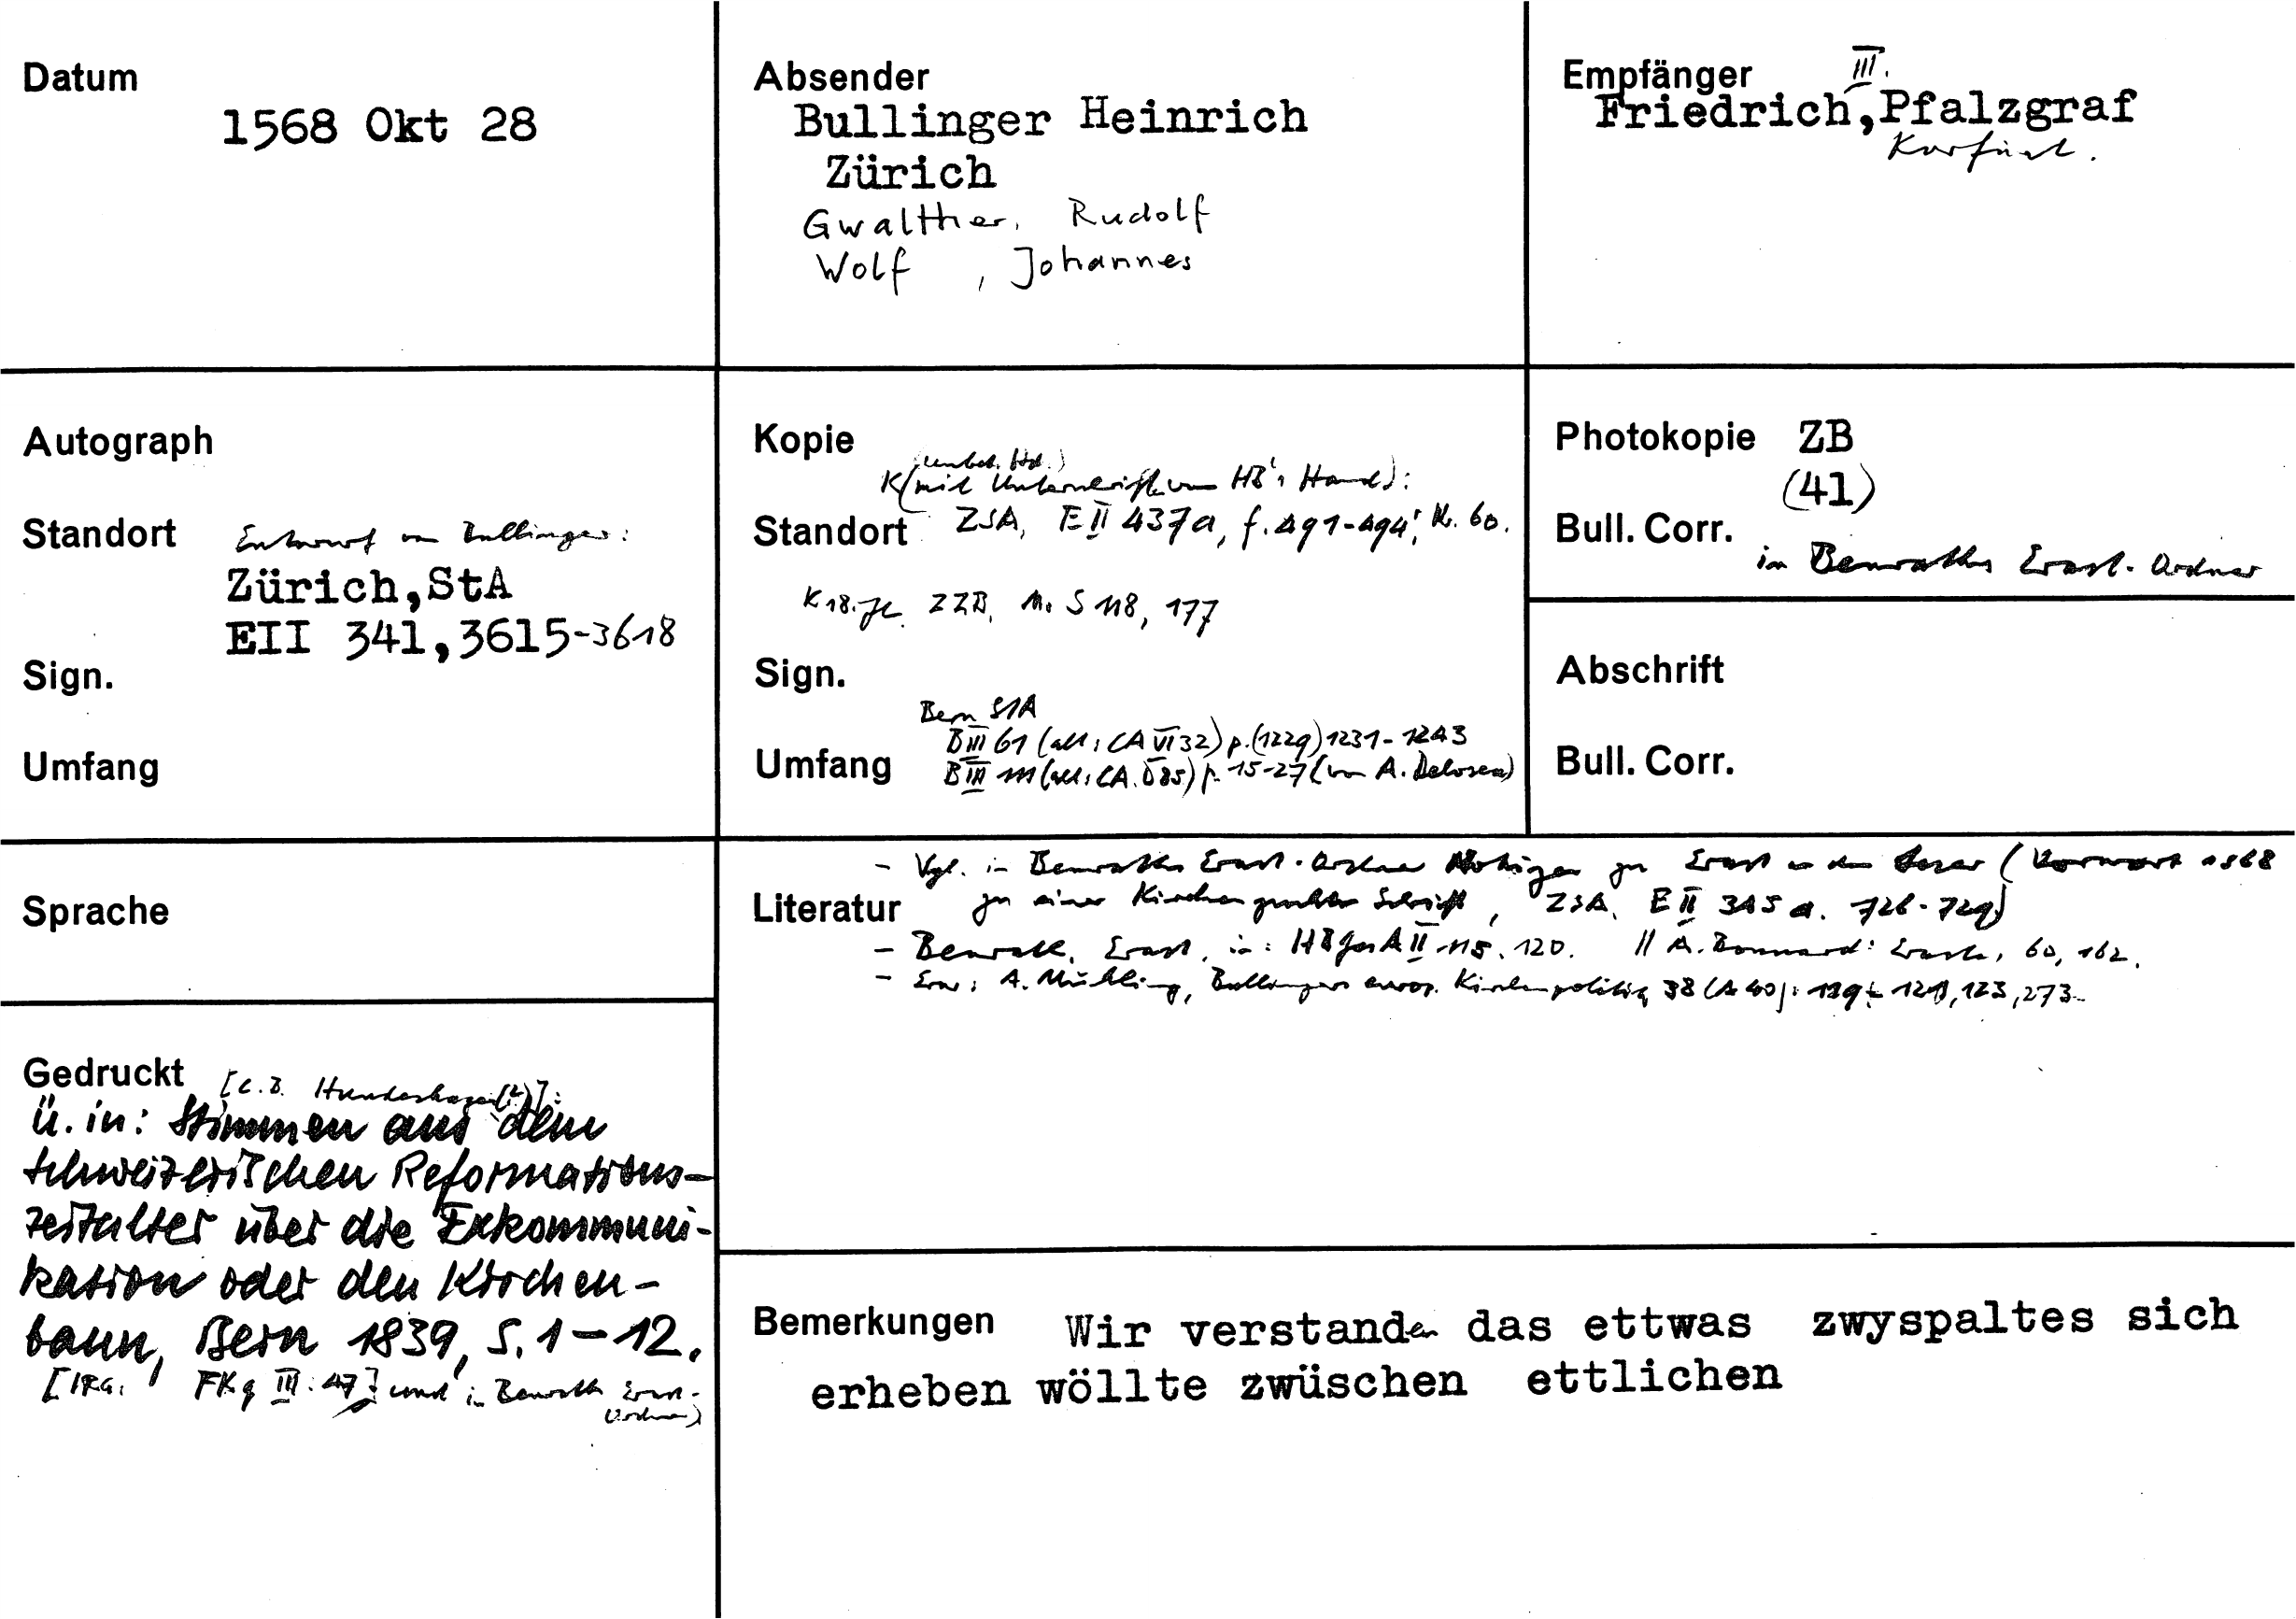 Datum
1568 Okt 28
Absender
Bullinger Heinrich
Zürich
Gwalther, Rudolf
Wolf , Johannes
Empfänger III.
Friedrich, Pfalzgraf
Kurfürst.
Autograph
Standort Entwurf von Bullinger:
Zürich,StA
EII 341,3615-3618
Sign.
Umfang
Kopie
(unbek. Hd.)
K(mit Unterschrift von HB's Hand):
Standort ZSA, E II 437a, f. 491-494; K. 60.
K 18. Jh. ZZB, Ms S 118, 177
Sign.
Bern StA
B III 61 (alt: CA VI 32) p. (1229) 1231-1243
Umfang B III 111 (alt: CA. 85) p. 15-27 (von A.
Photokopie ZB
(41)
Bull. Corr.
in Benraths Erast-Ordner
Abschrift
Bull. Corr.
Sprache
- Vgl. in Benraths Erast-Ordner Notizen zu Erast (Vorwort 1568
Literatur zu einer Schrift, ZSA, E II 345 a. 726-729)
- Benrath, Erast, in: HBGesA II 115. 120. // A. Bonnard: Eraste, 60, 162.
- Erw: A. Mühling, Bullingers europ. Kirchenpolitik, 38 (A 40); 123, 273
Gedruckt [C.B. Hundeshagen(?)]:
ü. in: Stimmen aus dem
schweizerischen Reformations-
zeitalter über die Exkommuni-
kation oder den Kirchen-
bann, Bern 1839, S. 1-12.
[IRG: FKg III: 47] und in Benrath Erast-
Ordner)
Bemerkungen Wir verstanden das ettwas zwyspaltes sich
erheben wöllte zwüschen ettlichen